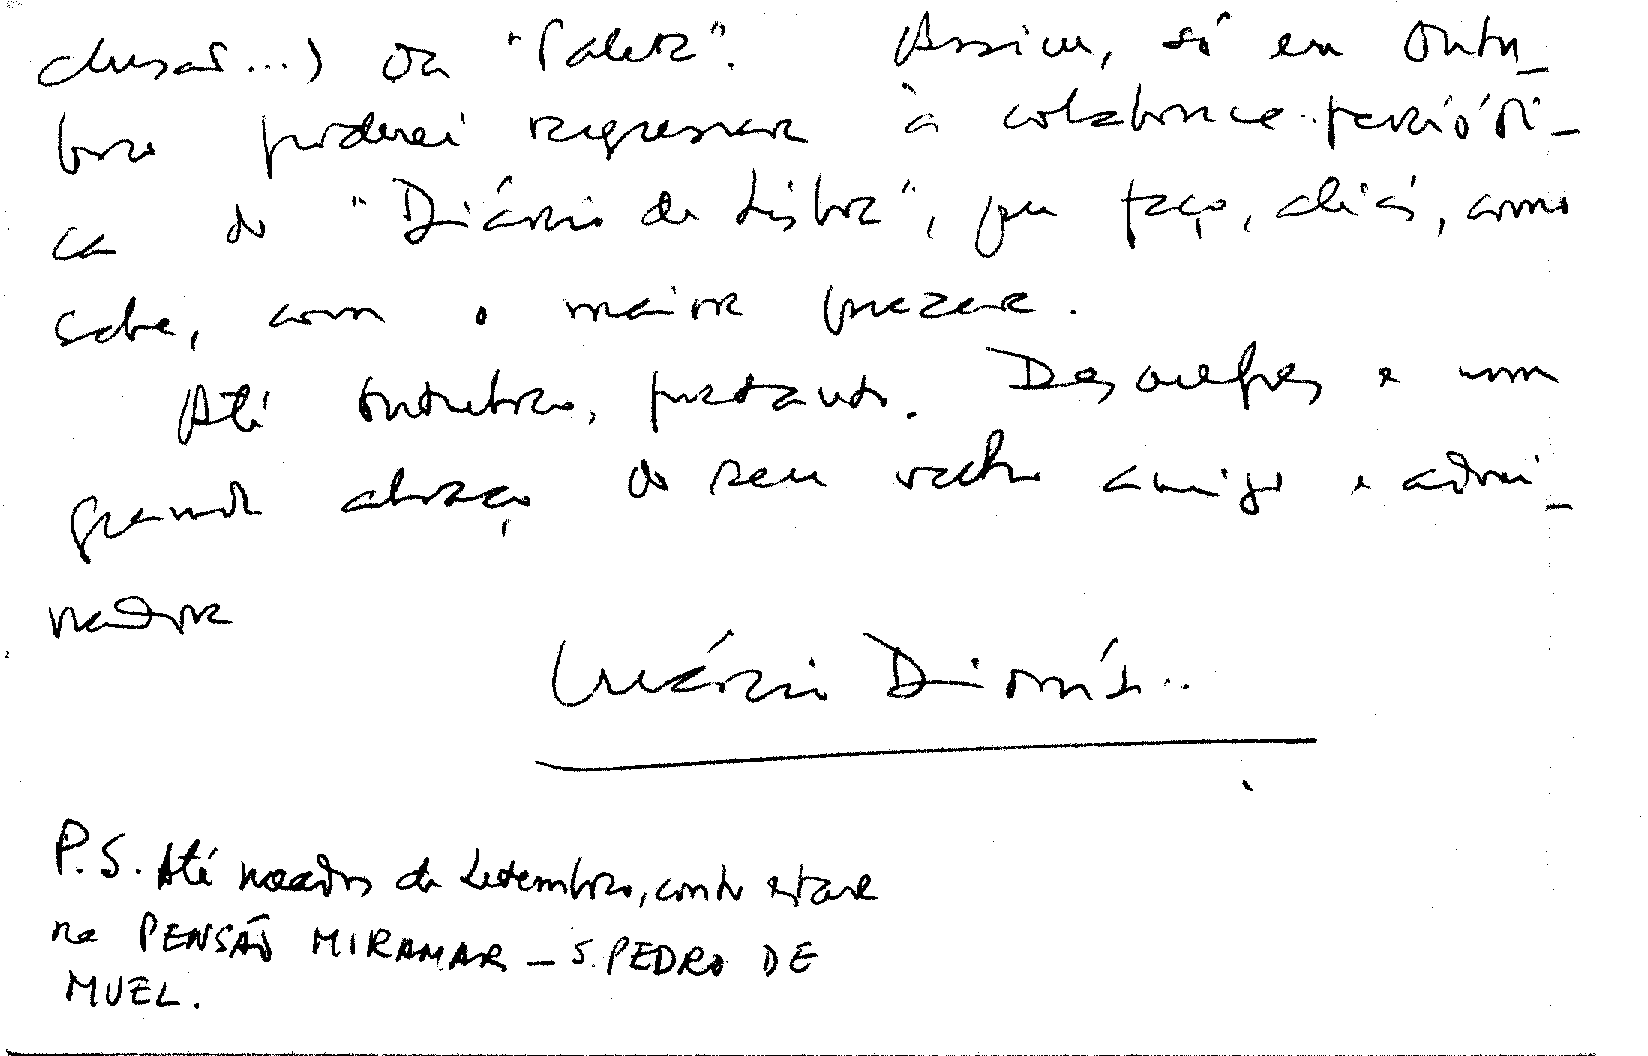 clusão...) da "Paleta". Assim, só em Outu-
bro poderei regressar à colaboração periódi-
ca do "Diário de Lisboa", que faço, aliás, como
sabe, com o maior prazer.
Até Outubro, portanto. Desculpe e um
grande abraço do seu velho amigo e admi-
rador
Mário Dionísio
P.S. Até meados de Setembro, conto estar
na PENSÃO MIRAMAR – S. PEDRO DE
MUEL.